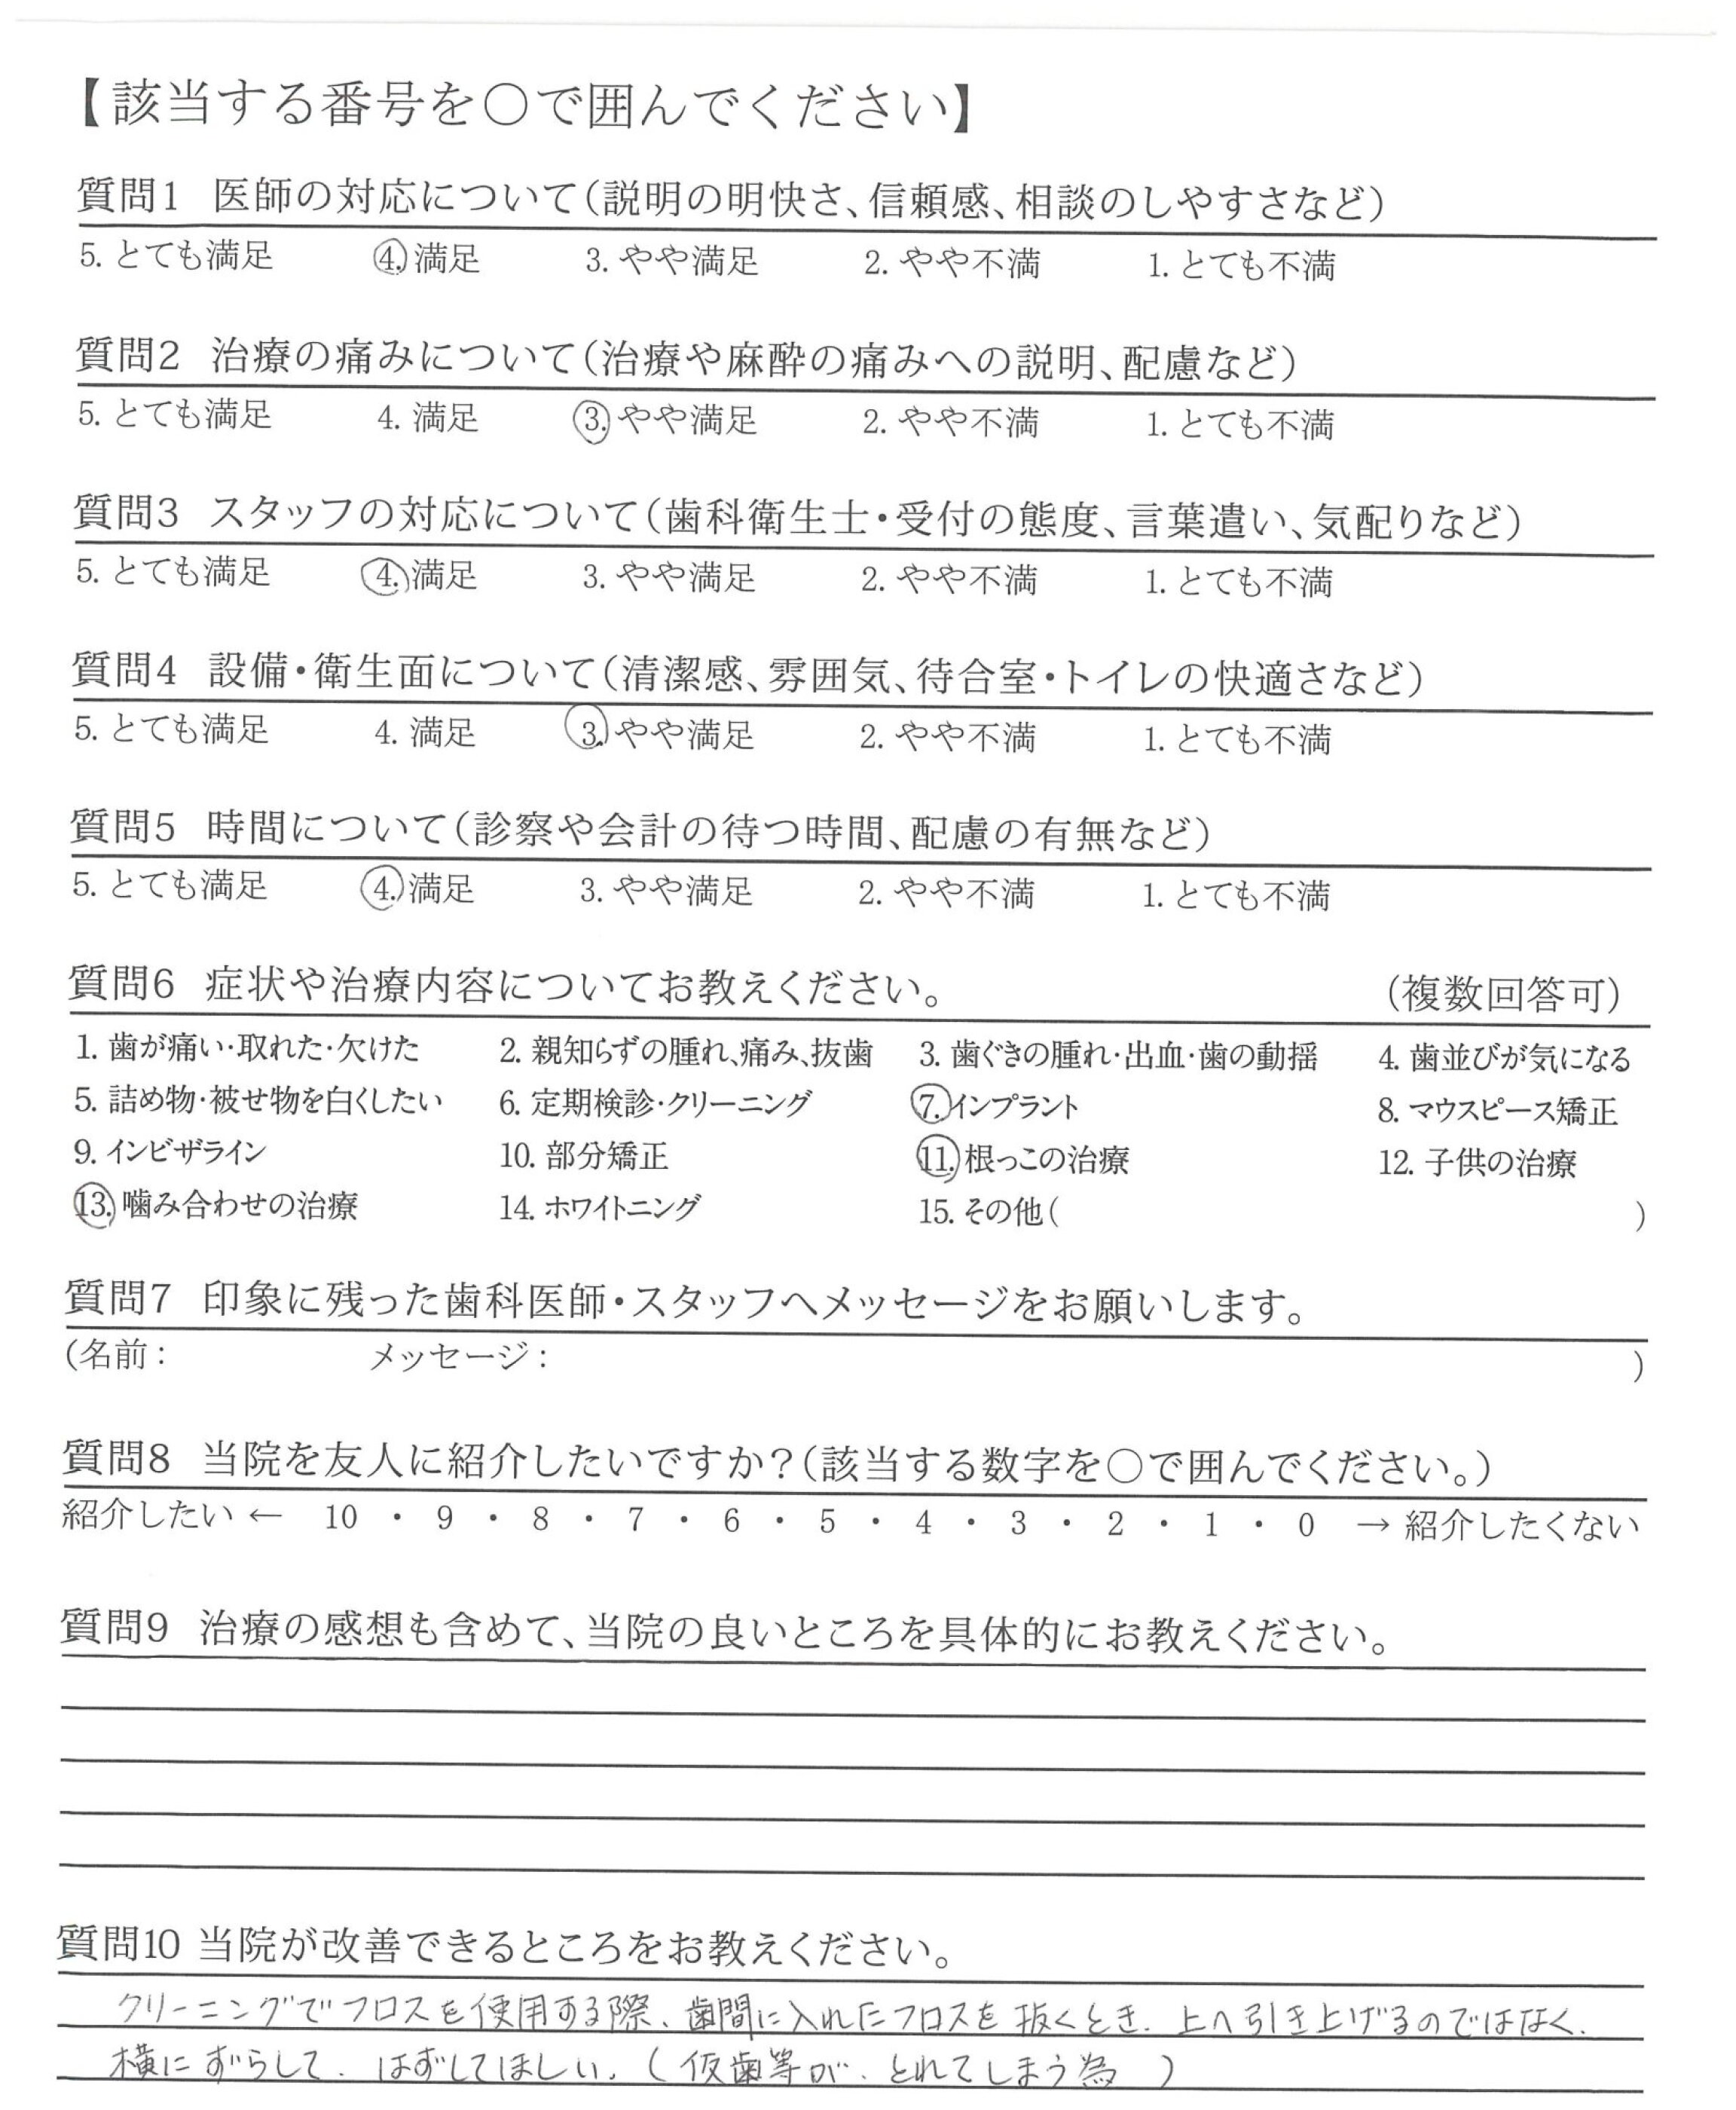 【該当する番号を○で囲んでください】
質問1 医師の対応について(説明の明快さ、信頼感、相談のしやすさなど)
5. とても満足 4. 満足 3. やや満足 2. やや不満 1. とても不満
質問2 治療の痛みについて(治療や麻酔の痛みへの説明、配慮など)
5. とても満足 4. 満足 3. やや満足 2. やや不満 1. とても不満
質問3 スタッフの対応について(歯科衛生士・受付の態度、言葉遣い、気配りなど)
5. とても満足 4. 満足 3. やや満足 2. やや不満 1. とても不満
質問4 設備・衛生面について(清潔感、雰囲気、待合室・トイレの快適さなど)
5. とても満足 4. 満足 3. やや満足 2. やや不満 1. とても不満
質問5 時間について(診察や会計の待つ時間、配慮の有無など)
5. とても満足 4. 満足 3. やや満足 2. やや不満 1. とても不満
質問6 症状や治療内容についてお教えください。 (複数回答可)
1. 歯が痛い・取れた・欠けた 2. 親知らずの腫れ、痛み、抜歯 3. 歯ぐきの腫れ・出血・歯の動揺 4. 歯並びが気になる
5. 詰め物・被せ物を白くしたい 6. 定期検診・クリーニング 7. インプラント 8. マウスピース矯正
9. インビザライン 10. 部分矯正 11. 根っこの治療 12. 子供の治療
13. 噛み合わせの治療 14. ホワイトニング 15. その他( )
質問7 印象に残った歯科医師・スタッフへメッセージをお願いします。
(名前: メッセージ: )
質問8 当院を友人に紹介したいですか?(該当する数字を○で囲んでください。)
紹介したい ← 10 ・ 9 ・ 8 ・ 7 ・ 6 ・ 5 ・ 4 ・ 3 ・ 2 ・ 1 ・ 0 → 紹介したくない
質問9 治療の感想も含めて、当院の良いところを具体的にお教えください。
質問10 当院が改善できるところをお教えください。
クリーニングでフロスを使用する際、歯間に入れたフロスを抜くとき、上へ引き上げるのではなく、
横にずらして、はずしてほしい。(仮歯等が、とれてしまう為 )